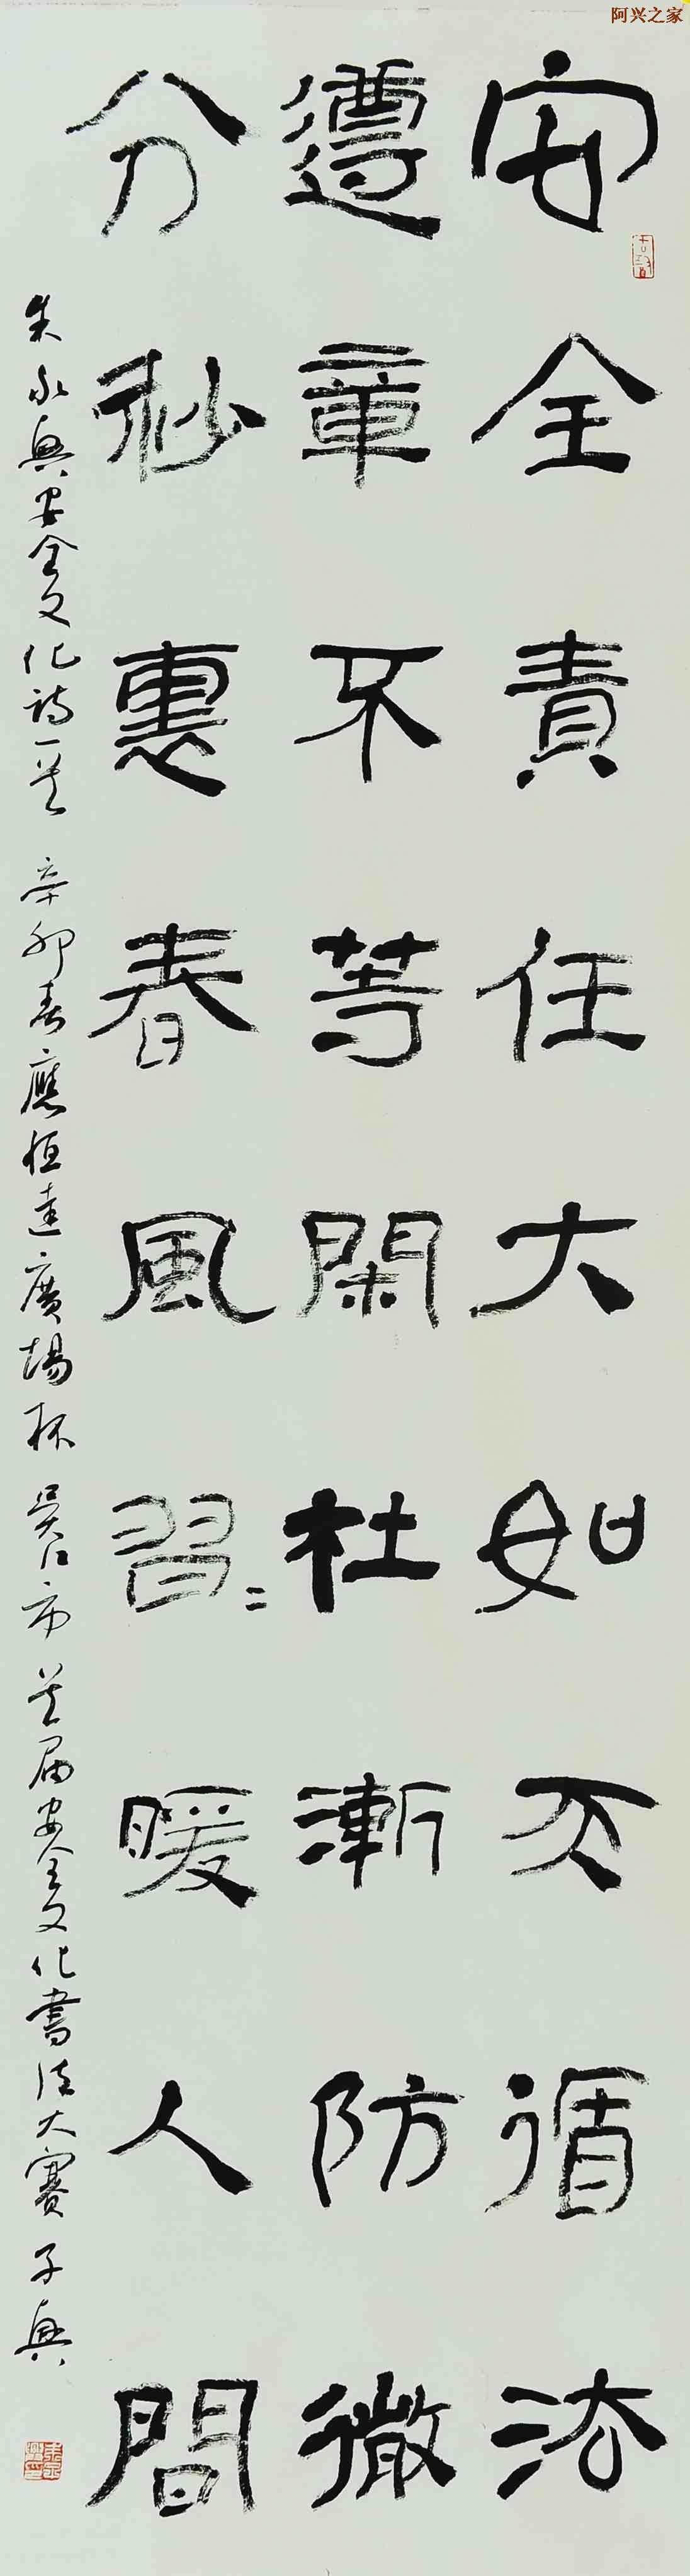 阿兴之家
安全責任大如天循法
遵章不等閑杜漸防微
分秒裏春風習〻暖人間
朱永興安全文化詩一首 辛卯春應恒達廣場杯吳江市首届安全文化書法大賽 子興